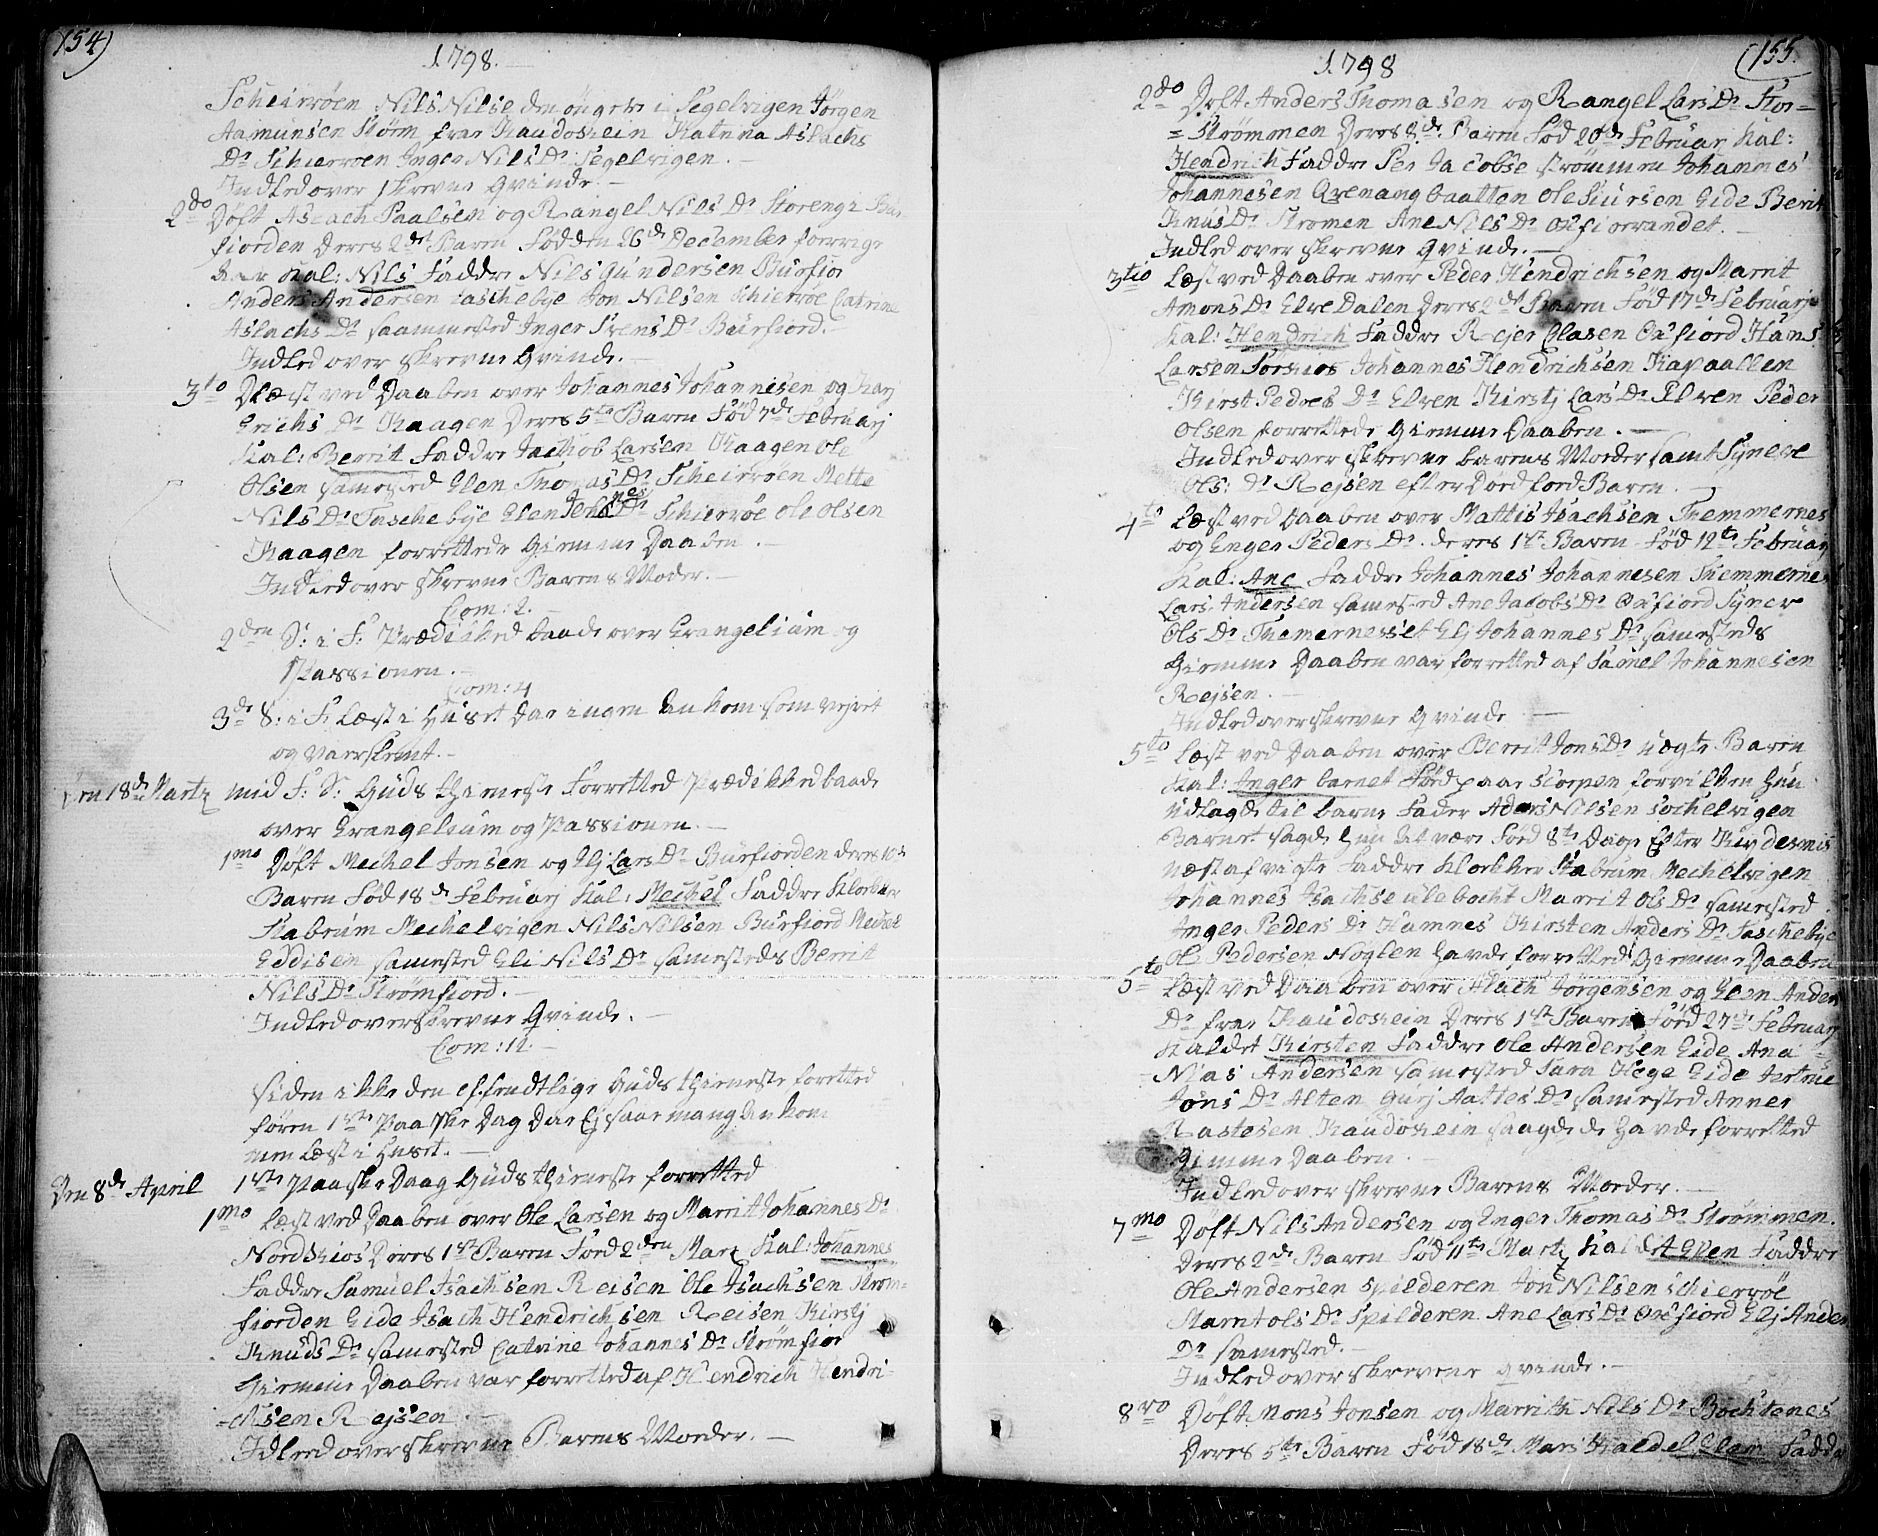 154)
1798.
Schierröen Nils Nilse den öngere i Segelvigen Jörgen
Aamunsen Störm fraa Kaudoskein Katrina Aslachs
Dr Schierröen Inger Nils Dr Segelvigen.
Indled over skrevne Qvinde.
2do Döft Aslach Paalsen og Rangel Nils Dr Storeng i Bur
fiorden Deres 2det Baren Född den 26de December forrige
Aar Kal: Nils Faddre Nils Gundersen Burfior
Anders Andersen Taschebye Jon Nilsen Schierröe Catrine
Aslachs Dr saammested Inger Svens Dr Burfiord.
Indled over skrevne Qvinde.
3to Læst ved Daaben over Johannes Johannisen og Karj
Erichs Dr Kaagen Deres 5te Baren Föd 7de Februarj
Kal: Berrit Faddre Jachob Larsen Kaagen Ole
Olsen samested Elen Thomas Dr Schierröen Mette
Nils Dr Taschebye Elen Johannes Dr Schierröe Ole Olsen
Kaagen forrettede Giemme Daaben.
Indled over skrevne Barens Moder.
Com: 2.
2den S: i F: Prædicked baade over Evangelium og
Passionen.
Com: 4
3de S: i F: Læst i Huset Daa ingen ankom som vejret
og var slemt.
Den 18de Martz mid F: S: Guds thieneste Forretted Prædikked baade
over Evangelium og Passionen.
1mo Döft Mechel Jonsen og Elj Lars Dr Burfiorden deres 10de
Baren Föd 18de Februarj Kal: Mechel Faddre Klocker
Stabrum Mechelvigen Nils Nilsen Burfiord Mechel
Eddisen samested Eli Nils Dr samesteds Berrit
Nils Dr Strömfiord.
Indled over skrevne Qvinde.
Com: 12
Siden ikke den offendtlige Guds thieneste foretted
fören 1ste Paaske Dag Daa Ej saa mang ankom
men Læst i Huset.
Den 8de April 1ste Paaske Daag Guds thieneste forretted
1mo Læst ved Daaben over Ole Larsen og Marrit Johannes Dr
Nordkios Deres 1ste Baren Förd 2den Martz Kal: Johannes
Faddre Samuel Isachsen Reisen Ole Isachsen Ström-
fiorden Eide Isach Hendrichsen Reisen Kirstj
Knuds Dr samested Catrine Johannes Dr Strömfior
Giemme Daaben var forretted af Hendrich Hendri-
chsen Rejsen.
Idled over skrevne Barens Moeder.
(155.
1798
2do Döft Anders Thomasen og Rangel Lars Dr Stor-
= Strömmen Deres 8de Baren Föd 20de Februar Kal:
Hendrich Faddre Per Jacobse Strömmen Johannes
Johannesen Qvenangbaatten Ole Siursen Eide Berit
Knus Dr Strömen Ane Nils Dr Oxfiorvandet.
Indled over skrevne Qvinde.
3tio Læst ved Daaben over Peder Hendrichsen og Marrit
Amons Dr Elve Dalen Deres 2det Baren Föd 17de Februarj
Kal: Hendrich Faddre Rejer Olasen Oxfiord Hans
Larsen Sorkios Johannes Hendrichsen Kapaallen
Kirst Peders Dr Elven Kirstj Lars Dr Elven Peder
Olsen forrettede Giemme Daaben.
Indled over skrevne barens Moeder samt Syneve
Ols: Dr Rejsen efter Dordford Baren.
4to Læst ved Daaben over Mattis Isachsen Themmernes
og Enger Peders Dr deres 1ste Baren Föd 12te Februarj
Kal: Ane Faddre Johannes Johannesen Themmernes
Lars Andersen samested Ane Jacobs Dr Oxfiord Syneve
Ols Dr Themernesset Elj Johannes Dr samesteds
Giemme Daaben var forretted af Samel Johannesen
Rejsen.
Indled over skrevne Qvinde
5to Læst ved Daaben over Berrit Jons Dr uægte Baren
Kal: Inger barnet Förd paa Scorpen forvilken Hun
udlagde til barne Fader Aders Nilsen Sochelvigen
Barnet sagde hun at være Förd 8te Dage Efter Kiydesmis
næst afvigte Faddre Klokker Stabrum Mechelvigen
Johannes Isachse Ulebocht Marrit Ols Dr samested
Inger Peders Dr Hamnes Kirsten Anders Dr Taschebye
Ole Pedersen Noglen havde forretted Giemme Daaben
5to Læst ved Daaben over Aslach Jörgensen og Elen Anders
Dr fraa Kaudoskein Deres 1ste Baren Förd 27de Februarj
Kaldet Kirsten Faddre Ole Andersen Eide Ana-
Nias Andersen samested Sara Hege Eide Jertrue
Jöns Dr Alten Gurj Aattes Dr samested Annes
Rastesen Kaudoskein saagde de havde forretted
Gimme Daaben.
Indled over skrevne Barens Moeder.
7mo Döft Nils Andersen og Enger Thomas Dr Strömmen.
Deres 2de Baren Föd 11te Martz Kaldet Elen Faddre
Ole Andersen Spilderen Jon Nilsen Schierröe
Marrit Ols Dr Spilderen Ane Lars Dr Oxfiord Elj Anders
Dr samested.
Indled over skrevene qvinde.
8vo Döft Mons Jonsen og Marrith Nils Dr Bochtenes
Deres 5te Baren Föd 18de Mars Kaldet Elen Faddre